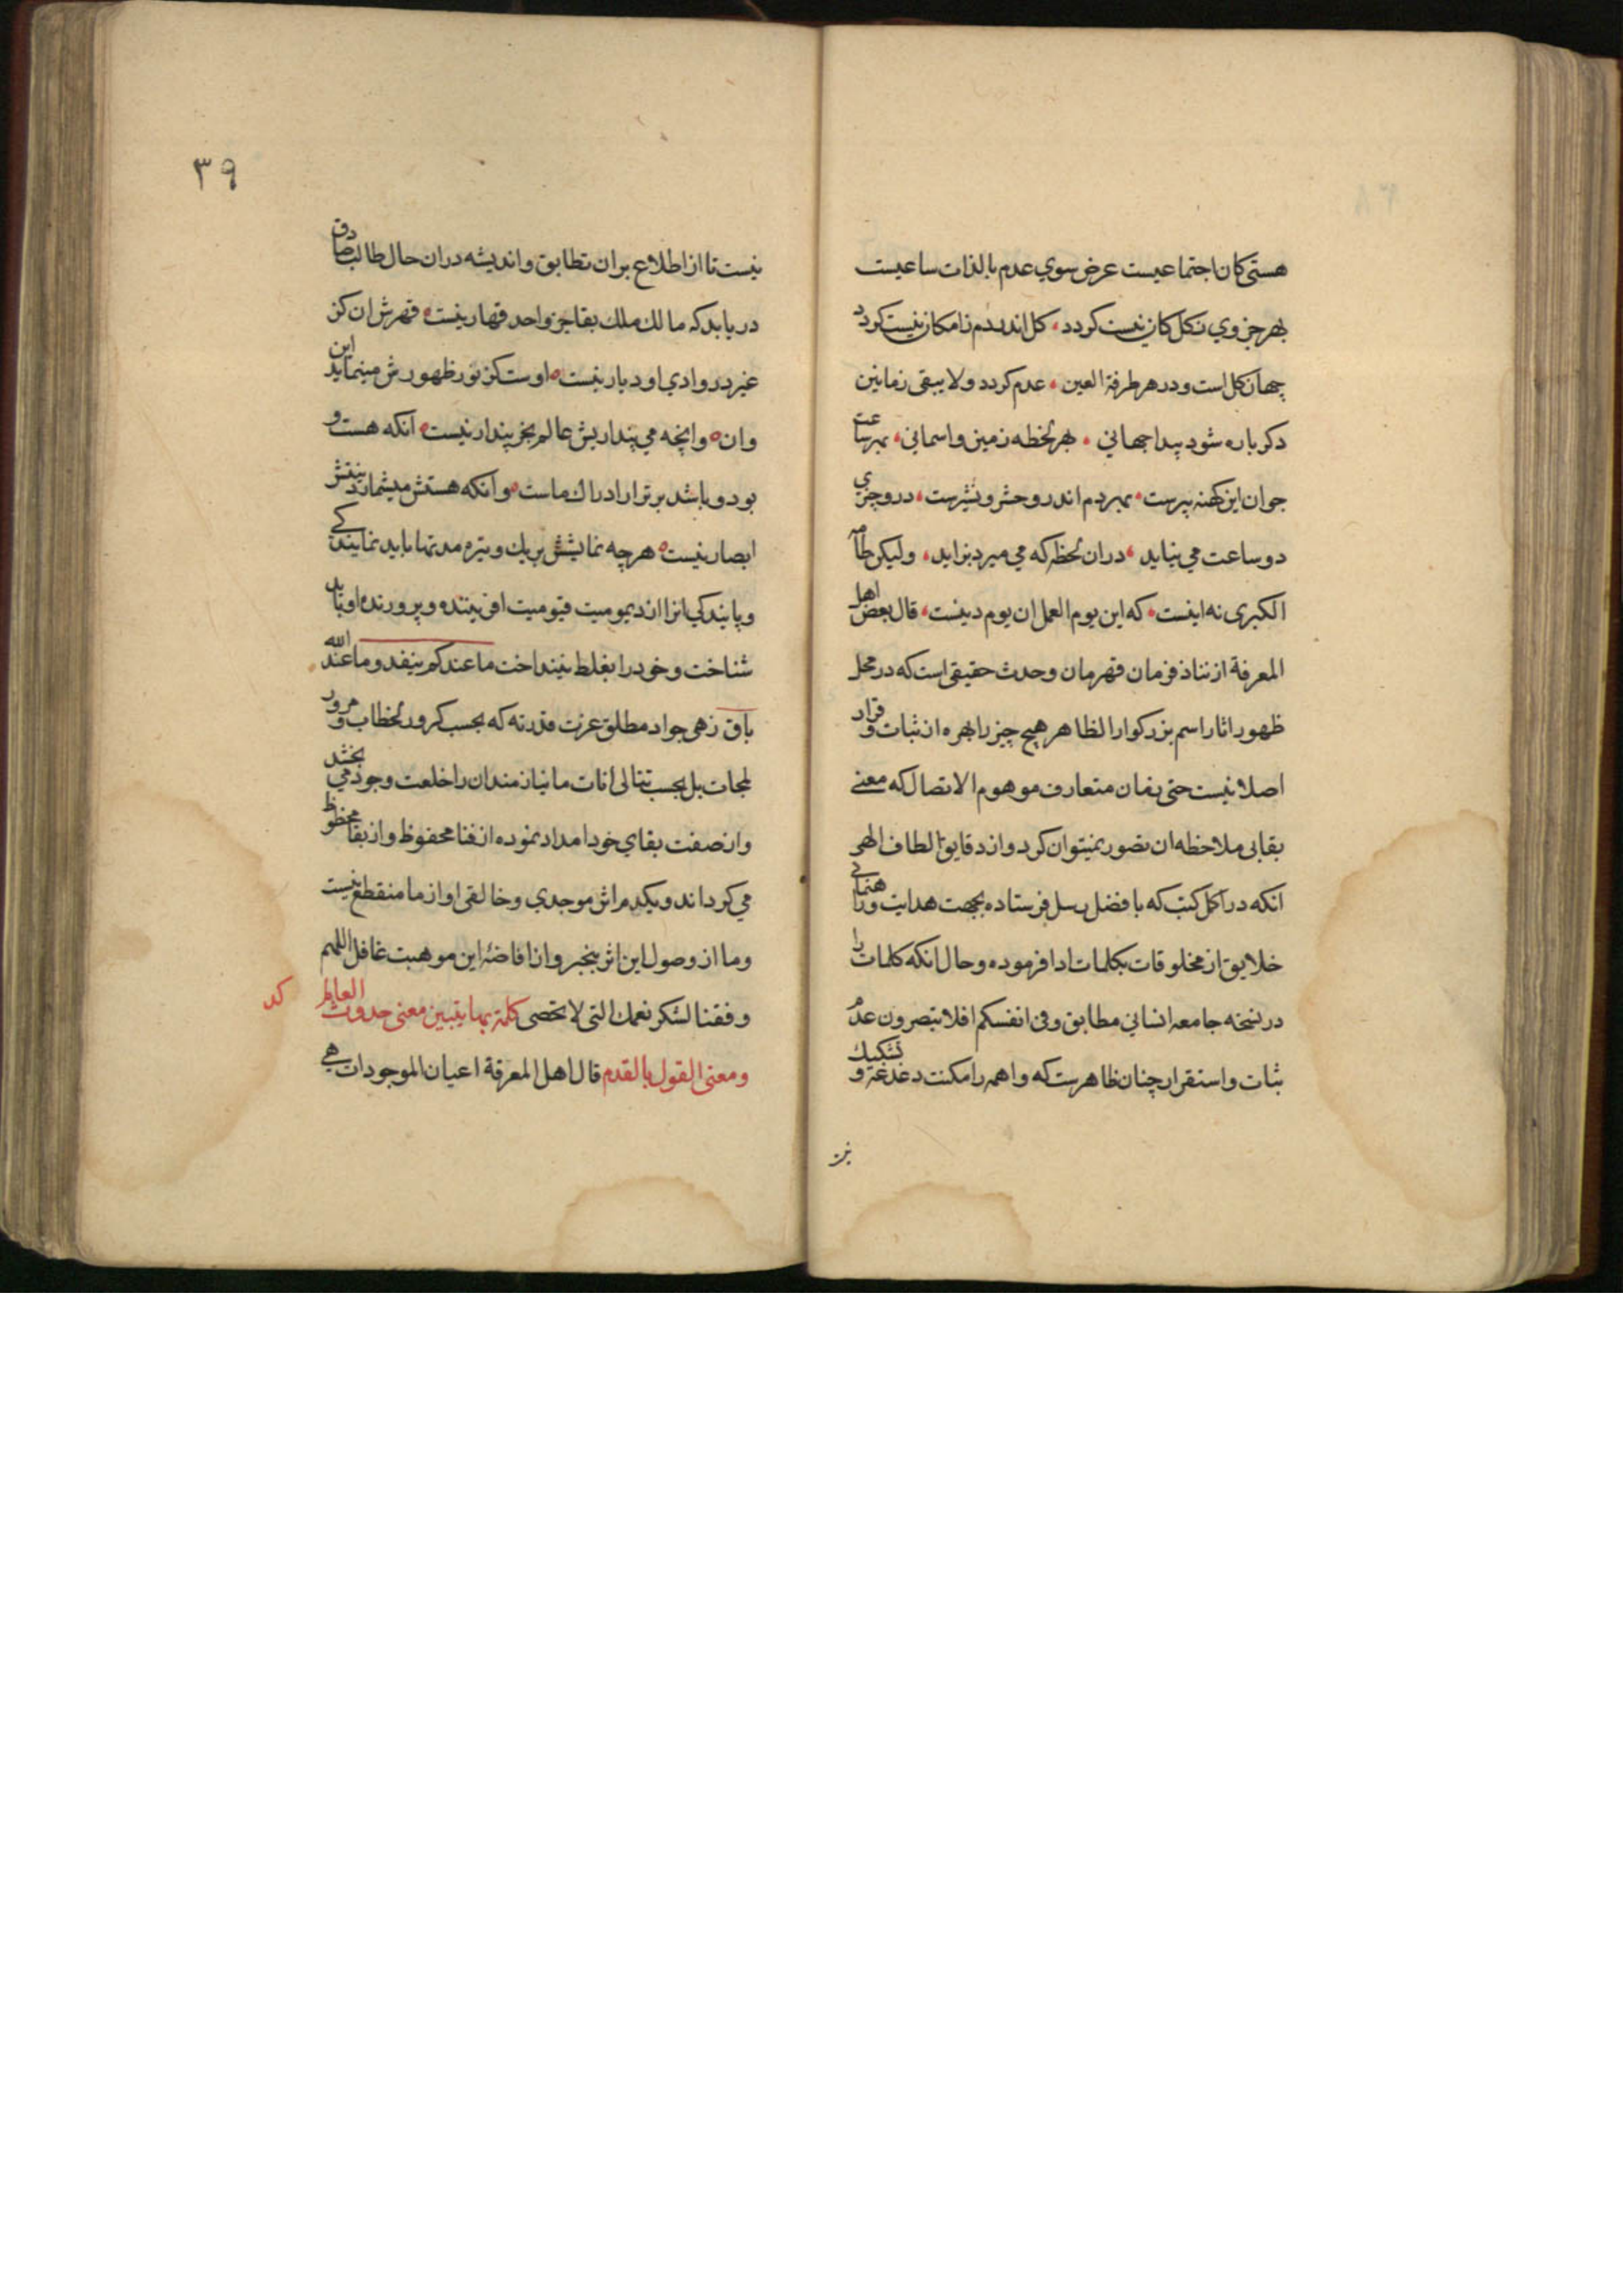 هستی کان اجتماعیست عرض سوي عدم بالذات ساعیست
بهر جزوي ز کل کان نیست کردد کل اندر دم ز امکان نیست کردد
جهان کل است و در هر طرفة العین عدم کردد و لا یبقی زمانین
دکر باره شود پیدا جهانی بهر لحظه زمین و اسمانی بهر ساعت
جوان این کهنه پیرست بهر دم اندرو حشر و نشیرست درو چیزي
دو ساعت می نپاید دران لحظه که می میرد بزاید ولیکن طامة
الکبری نه اینست که این یوم العمل ان یوم دینست قال بعض اهل
المعرفة از نفاذ فرمان قهرمان وحدت حقیقی است که در محل
ظهور اثار اسم بزرکوار الظاهر هیچ چیز را بهره از ثبات و قرار
اصلا نیست حتی زمان متعارف موهوم الاتصال که معنی
بقا بی ملاحظه ان تصور نمیتوان کرد و از دقایق الطاف الهی
انکه در اکمل کتب که با فضل رسل فرستاده بجهت هدایت و رهنمائی
خلایق از مخلوقات بکلمات ادا فرموده و حال انکه کلمات را
در نسخه جامعه انسانی مطابق وفی انفسکم افلا تبصرون عدم
ثبات و استقرار چنان ظاهرست که واهمه را مکنت دغدغه و تشکیک
نیست
۳۹
نیست تا از اطلاع بران تطابق و اندیشه دران حال طالب صادق
دریابد که مالک ملک بقا جز واحد قهار نیست قهرش ان کز
غیر در وادي او دیار نیست اوست کز نور ظهورش مینماید این
و ان و انچه می پنداریش عالم بجز پندار نیست انکه هست و
بود و باشد برتر از ادراك ماست و انکه هستش میشمارد بینش
ابصار نیست هرچه نمایشش بریك وتیره مدتها باید نمایندکی
و پایندکی انرا از دیمومیت قیومیت افریننده و پرورنده او باید
شناخت و خود را بغلط نینداخت ما عندکم ینفد و ما عند الله
باق زهی جواد مطلق عزت قدرته که بحسب کرور لحظات و مرور
لمحات بل بحسب تتالی انات ما نیازمندان را خلعت وجود می بخشد
و از صفت بقاي خود امداد نموده از فنا محفوظ و از بقا محظوظ
می کرداند و یکدم اثر موجدي و خالقی او از ما منقطع نیست
و ما از وصول این اثر بیخبر و از افاضۀ این موهبت غافل اللهم
وفقنا لشکر نعمك التی لا تحصی کلمة بها یتبین معنی حدوث العالم
کد
و معنی القول بالقدم قال اهل المعرفة اعیان الموجودات هي